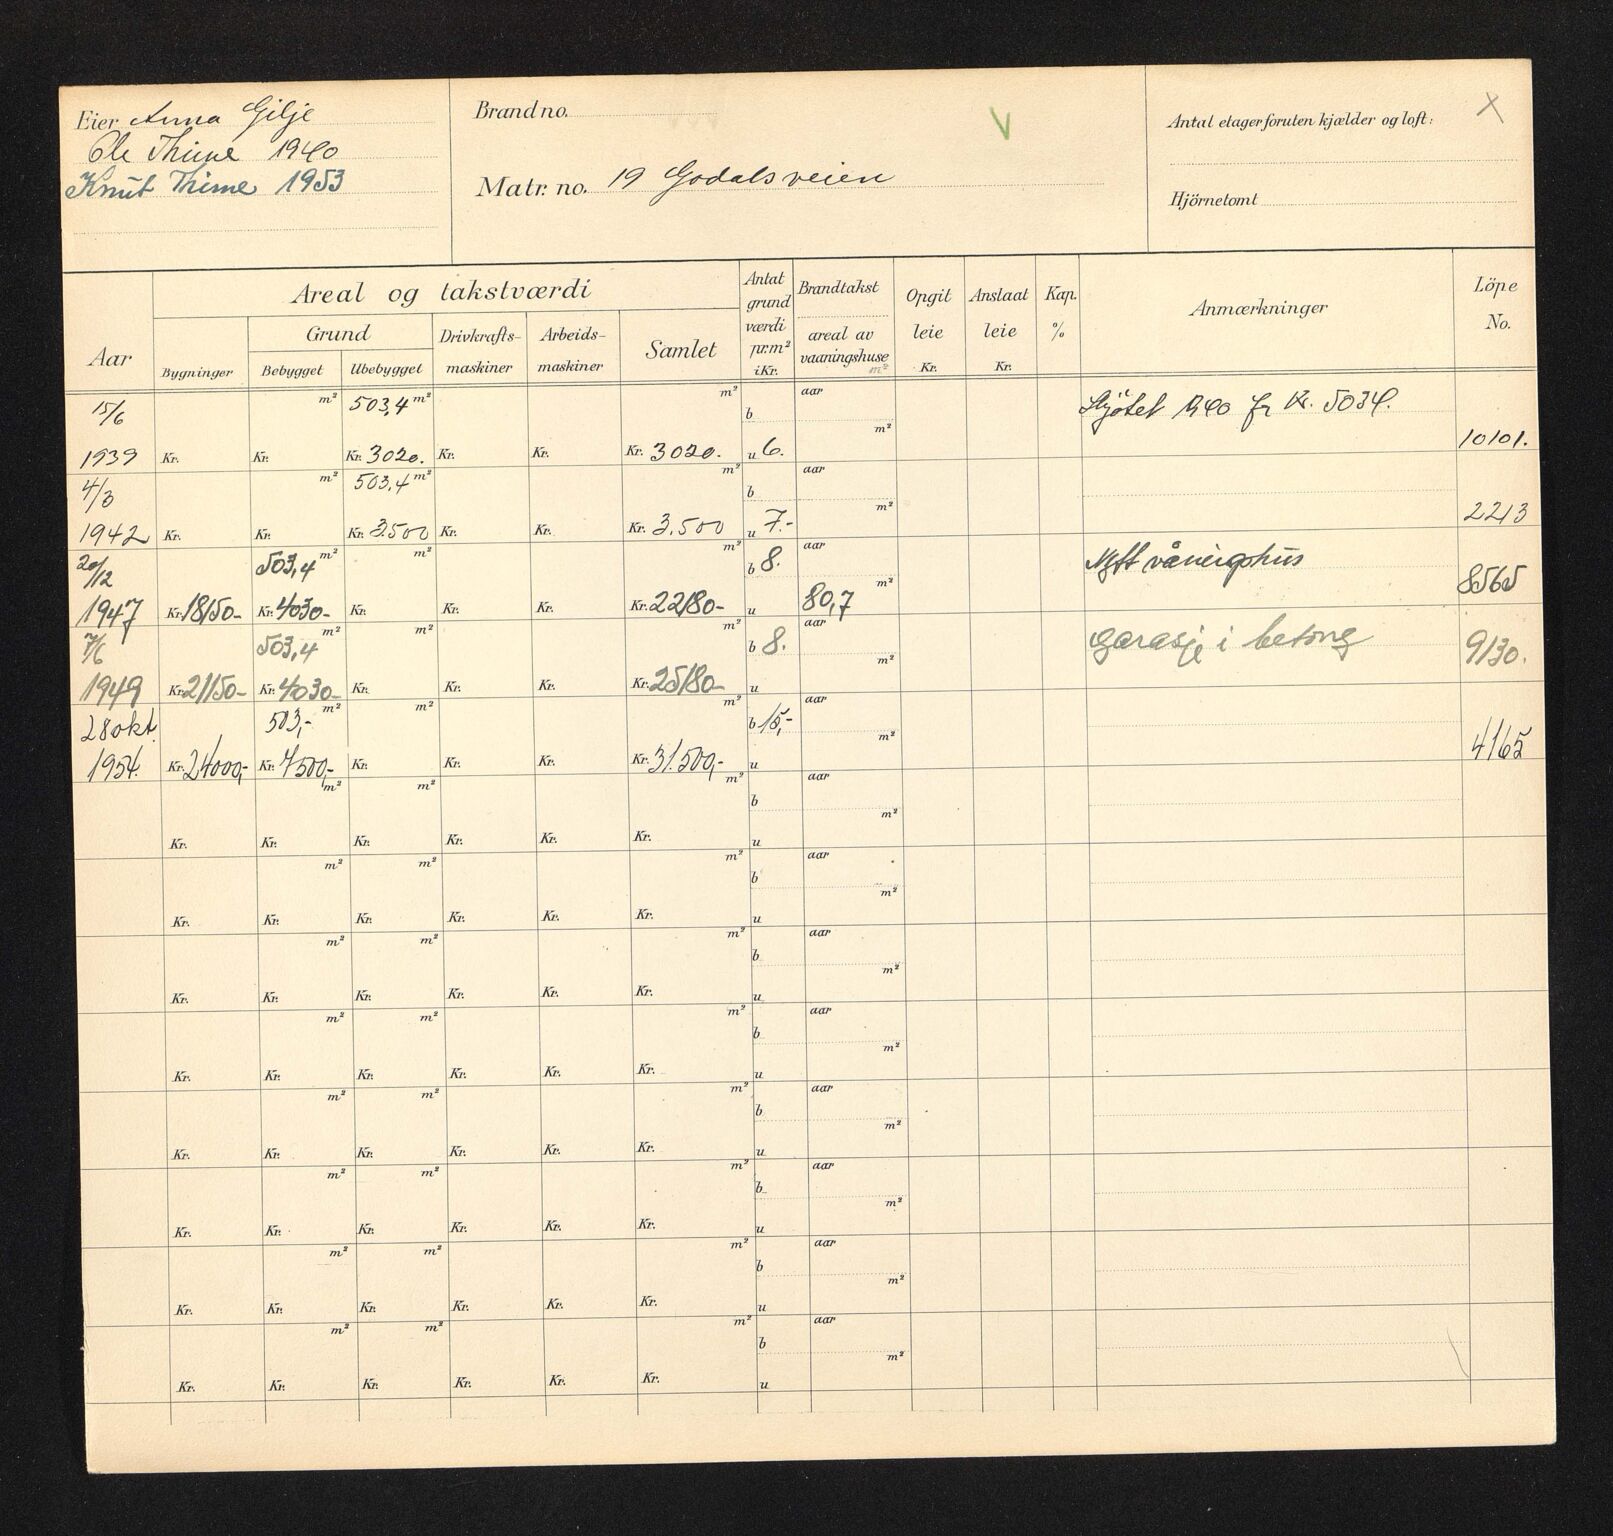 Eier Anna Gilje
Ole Thime 1940
Knut Thime 1953
Brand no.
Matr. no. 19 Godalsveien
V
Antal etager foruten kjælder og loft: X
Hjörnetomt
Aar
Areal og takstværdi
Bygninger
Grund
Bebygget
Ubebygget
Drivkrafts-
maskiner
Arbeids-
maskiner
Samlet
Antat
grund
værdi
pr.m²
i Kr.
Brandtakst
areal av
vaaningshuse
m²
Opgit
leie
Kr.
Anslaat
leie
Kr.
Kap.
%
Anmærkninger
Löpe
No.
15/6 m² 503,4 m² m² b aar Skjötet 1940 fr Kr. 5034.
m²
1939 Kr. Kr. Kr. 3020. Kr. Kr. Kr. 3020. u 6. 10101.
4/3 m² 503,4 m² m² b aar
m²
1942 Kr. Kr. Kr. 3.500 Kr. Kr. Kr. 3.500 u 7.- 2213
20/12 503,4 m² m² m² b 8. aar Nytt våningshus
m²
1947 Kr. 18150- Kr. 4030- Kr. Kr. Kr. Kr. 22180- u 80,7 8565
7/6 503,4 m² m² m² b 8. aar garasje i betong
m²
1949 Kr. 21150- Kr. 4030- Kr. Kr. Kr. Kr. 25180- u 9130.
28 okt. 503,- m² m² m² b 15,- aar
m²
1954. Kr. 24000,- Kr. 7500,- Kr. Kr. Kr. Kr. 31.500,- u 4165
m² m² m² b aar
m²
Kr. Kr. Kr. Kr. Kr. Kr. u
m² m² m² b aar
m²
Kr. Kr. Kr. Kr. Kr. Kr. u
m² m² m² b aar
m²
Kr. Kr. Kr. Kr. Kr. Kr. u
m² m² m² b aar
m²
Kr. Kr. Kr. Kr. Kr. Kr. u
m² m² m² b aar
m²
Kr. Kr. Kr. Kr. Kr. Kr. u
m² m² m² b aar
m²
Kr. Kr. Kr. Kr. Kr. Kr. u
m² m² m² b aar
m²
Kr. Kr. Kr. Kr. Kr. Kr. u
m² m² m² b aar
m²
Kr. Kr. Kr. Kr. Kr. Kr. u